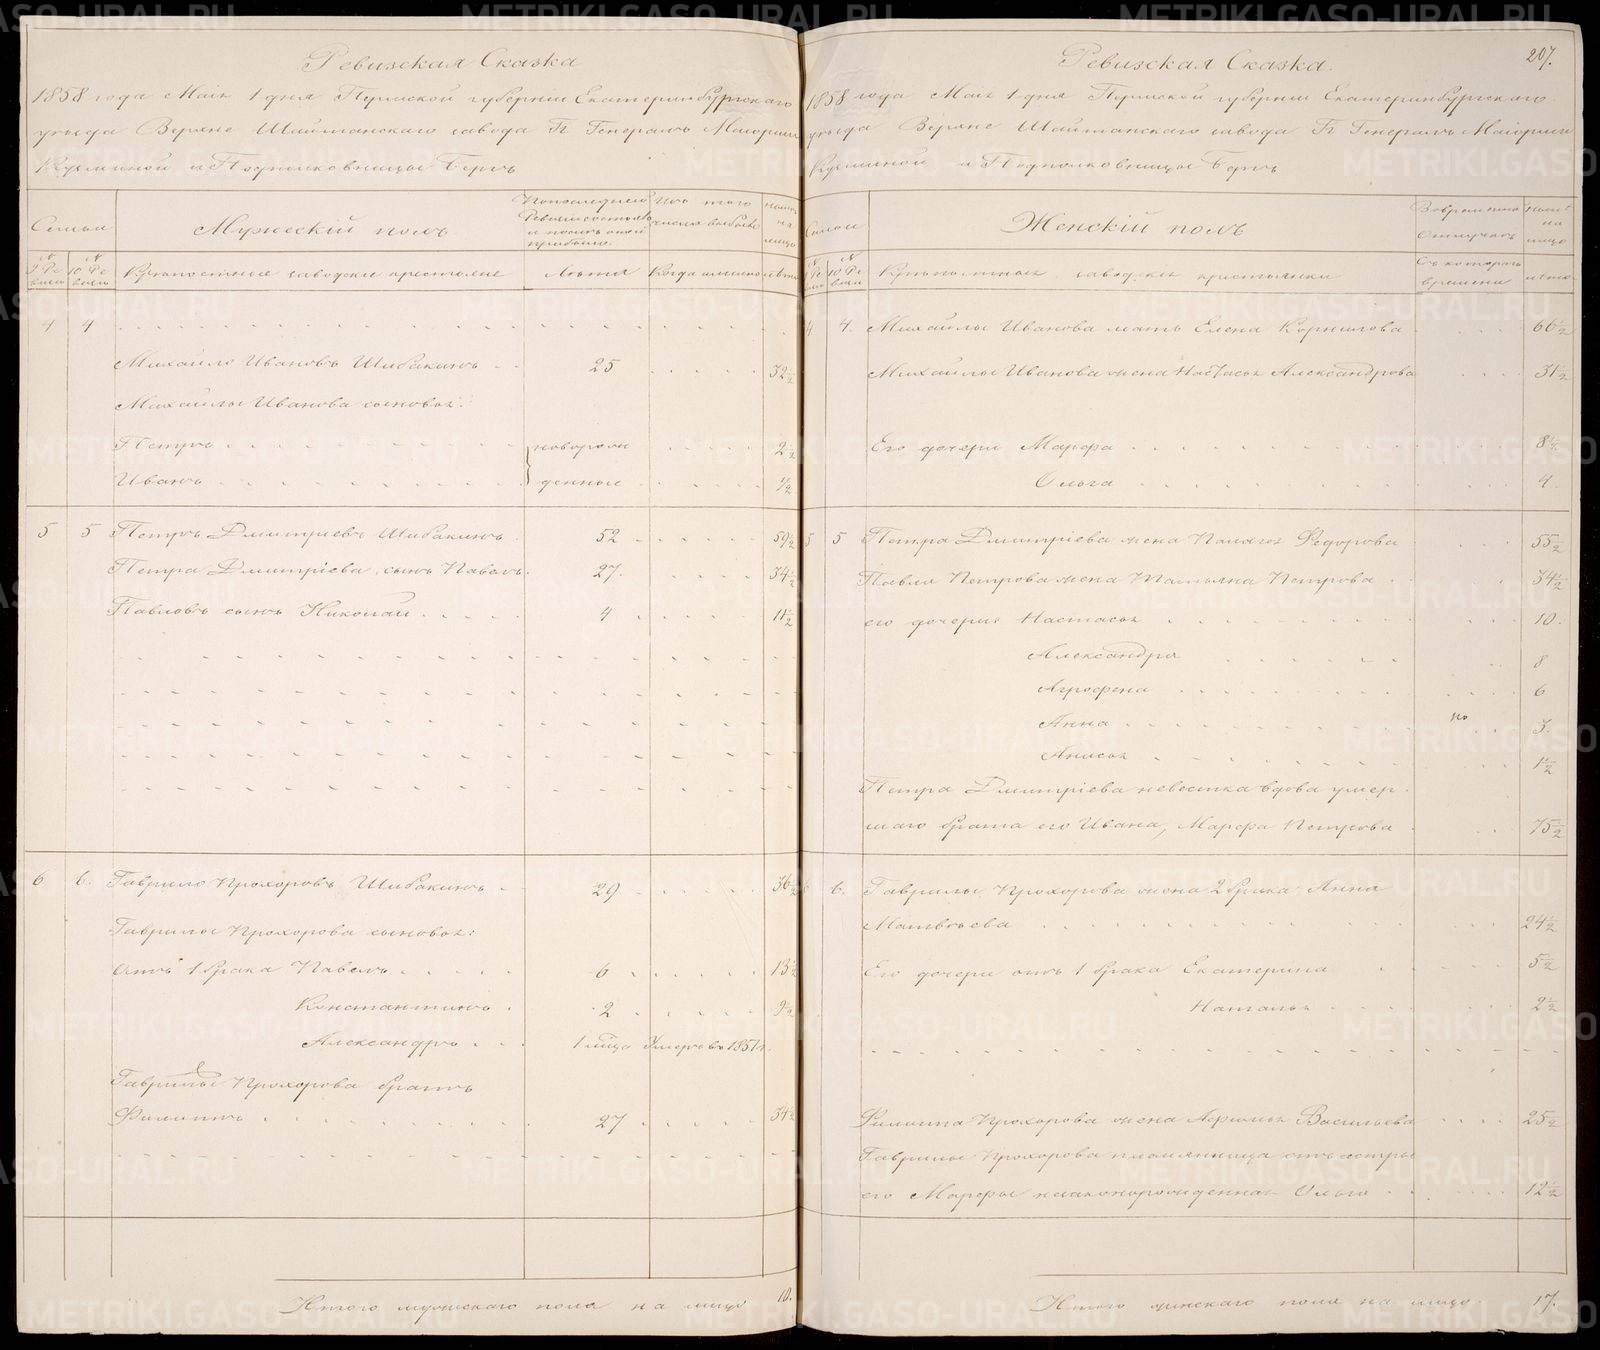 Ревизская Сказка
1858 года Маія 1 дня Пермской губерніи Екатеринбургскаго
уезда Верхне Шайтанскаго завода Гг Генералъ Маіорши
Кузминой и Подполковницы Бергъ
Семьи
Мужескій полъ
Крепостные заводскіе крестьяне
Лета
Когда именно
лета
4 4
Михайло Ивановъ Шибакинъ 25 32½
Михайлы Иванова сыновья:
Петръ новорож 2½
Иванъ денные ½
5 5 Петръ Дмитріевъ Шибакинъ 52 59½
Петра Дмитріева сынъ Павелъ 27 34½
Павловъ сынъ Николай 4 11½
6 6. Гаврило Прохоровъ Шибакинъ 29 36½
Гаврилы Прохорова сыновья:
отъ 1 брака Павелъ 6 13½
Константинъ 2 9½
Александръ умеръ въ 1851 г.
Гаврилы Прохорова братъ
Филиппъ 27 34½
Итого мужескаго пола на лицо 10.
207.
Ревизская Сказка.
1858 года Маія 1 дня Пермской губерніи Екатеринбургскаго
уезда Верхне Шайтанскаго завода Гг Генералъ Маіорши
Кузминой и Подполковницы Бергъ
Семьи
Женскій полъ
Во временной
отлучке
на
лицо
Крепостныя заводскія крестьянки
Съ котораго
времени
лета
4 4. Михайлы Иванова мать Елена Корнилова 66½
Михайлы Иванова жена Настасья Александрова 31½
Его дочери Марфа 8½
Ольга 4
5 5 Петра Дмитріева жена Палагея Федорова 55½
Павла Петрова жена Татьяна Петрова 34½
его дочери Настасья 10.
Александра 8
Агрофена 6
Анна 3.
Анисья 1½
Петра Дмитріева невестка вдова умер
шаго брата его Ивана, Марфа Петрова 75½
6 6. Гаврилы Прохорова жена 2 брака Анна
Матвеева 24½
Его дочери отъ 1 брака Екатерина 5½
Наталья 2½
Филиппа Прохорова жена Афимья Васильева 25½
Гаврилы Прохорова племянница отъ сестры
его Марфы незаконорожденная Ольга 12½
Итого женскаго пола на лицо. 17.
METRIKI.GASO-URAL.RU